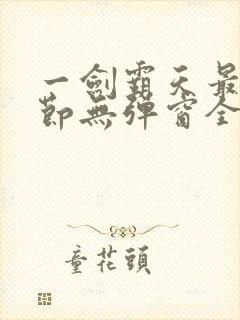 一劍霸天最
節無彈窗全
童花頭